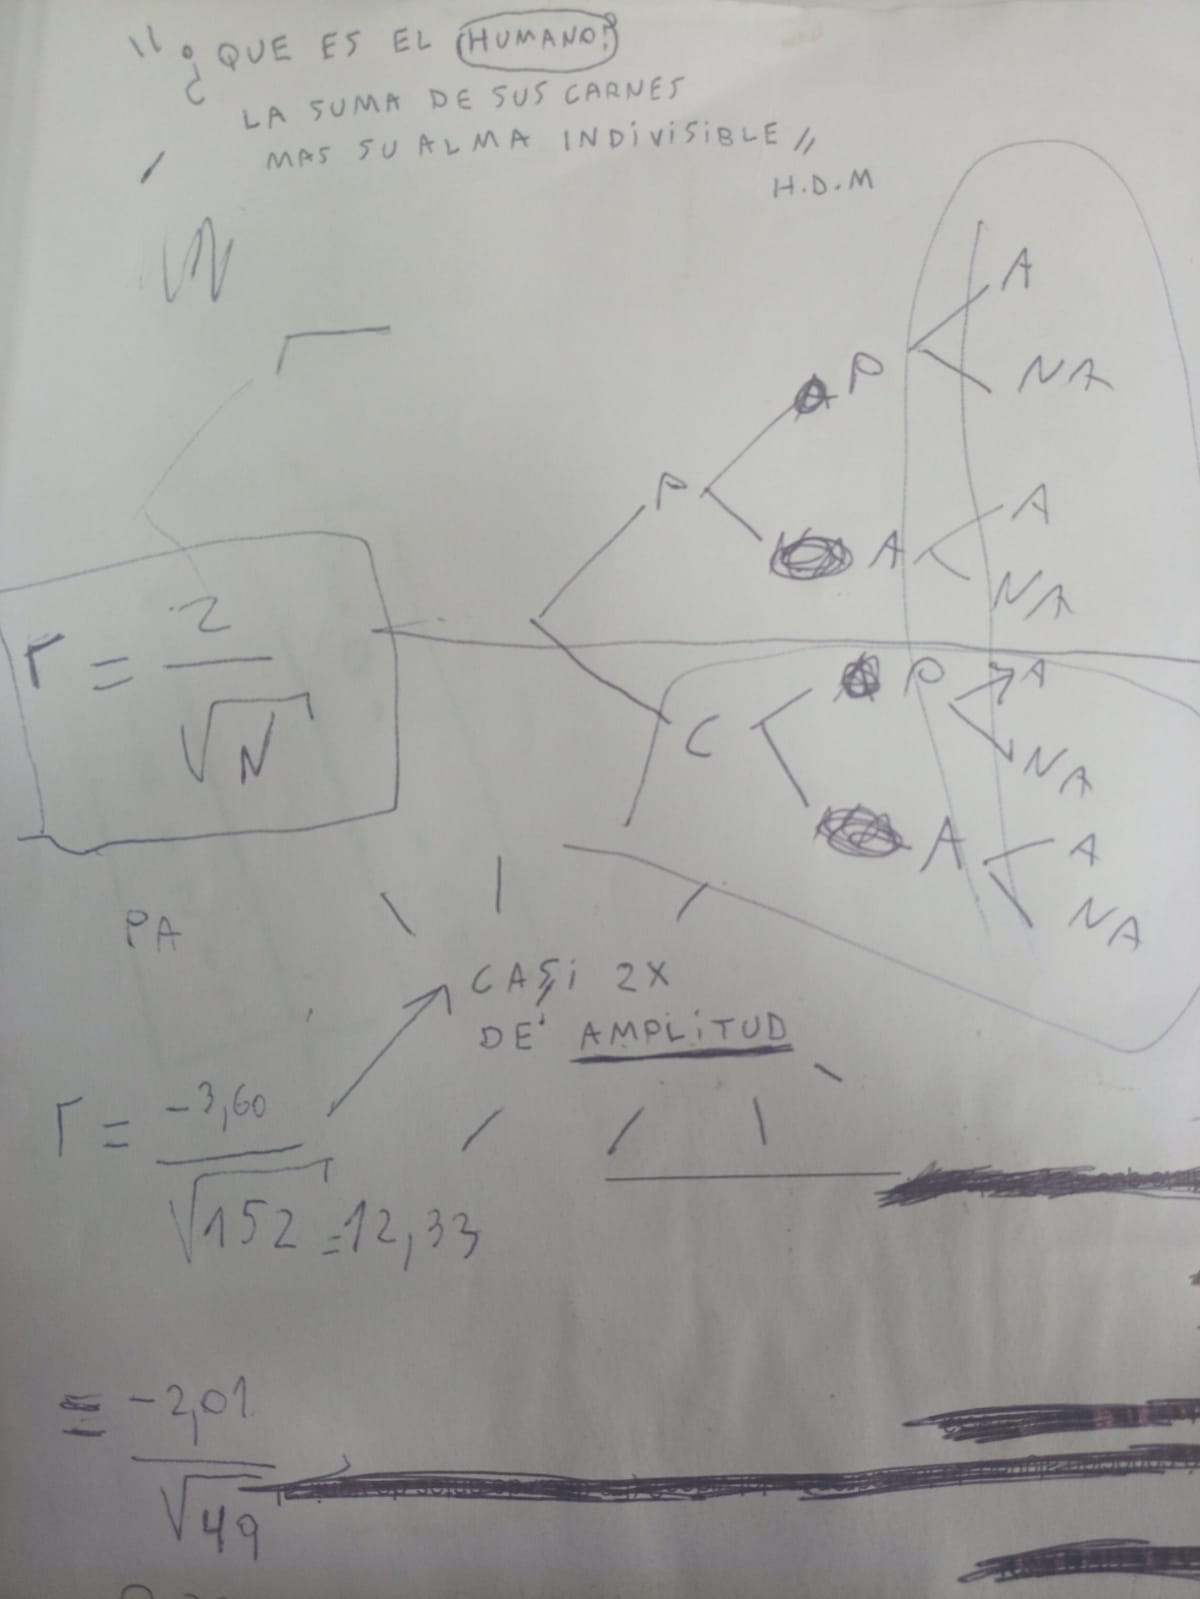 "¿QUE ES EL HUMANO?
LA SUMA DE SUS CARNES
MAS SU ALMA INDIVISIBLE"
H.D.M
A
P
NA
P
A
A
NA
r = Z / √N
P
A
C
NA
A
A
NA
PA
CASI 2X
DE AMPLITUD
r = -3,60 / √152 = 12,33
= -2,01 / √49